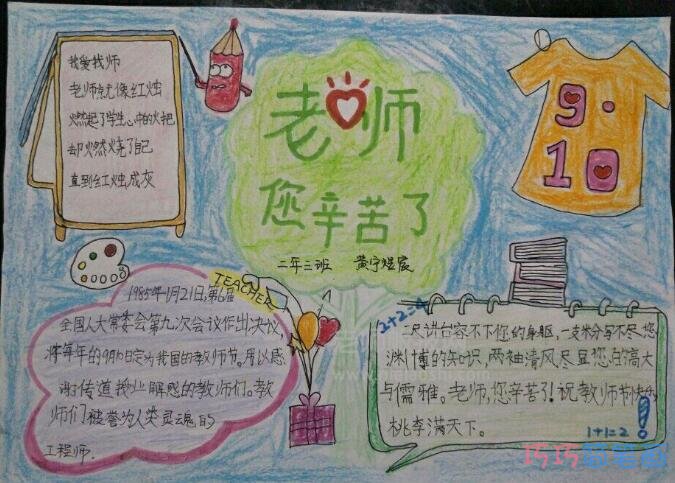 我爱我师
老师就像红烛
燃起了学生心中的火把
却燃烧了自己
直到红烛成灰
老师
您辛苦了
二年三班 黄宇煜宸
9·
10
TEACHER
1985年1月21日,第6届
全国人大常委会第九次会议作出决议,
将每年的9月10日定为我国的教师节。用以感
谢传道授业解惑的教师们。教
师们被誉为人类灵魂的
工程师.
2+2=4
二尺讲台容不下您的身躯,一支粉笔写不尽您
渊博的知识,两袖清风尽显您的高大
与儒雅。老师,您辛苦了!祝教师节快乐
桃李满天下。
1+1=2
巧巧